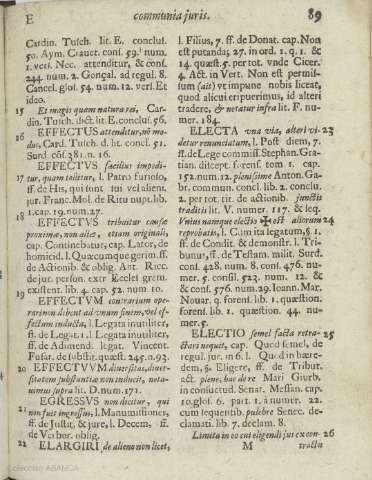 E communia juris. 89
Cardin. Tusch. lit. E. conclus.
50. Aym. Crauet. cons. 59. num.
1. vers. Nec. attenditur, & cons.
244. num. 2. Gonçal. ad regul. 8.
Cancel. glos. 54. num. 12. vers. Et
ideo.
15 Et magis quam natura rei, Car-
din. Tusch. dict. lit. E. conclus. 56.
16 EFFECTUS attenditur, nō mo-
dus, Card. Tusch. d. lit. concl. 51.
Surd. cōs. 381. n. 16.
EFFECTVS facilius impedi-
17 tur, quam tollitur, l. Patre furioso,
ff. de His, qui sunt sui vel alieni.
jur. Franc. Mol. de Ritu nupt. lib.
18 1. cap. 19. num. 27.
EFFECTVS tribuitur causæ
proximæ, non aliæ, etiam originali,
cap. Continebatur, cap. Lator, de
homicid. l. Quæcumque gerim. ff.
de Actionib. & oblig. Ant. Ricc.
de jur. person. extr Eccles grem.
existent. lib. 4. cap. 52. num. 10.
19 EFFECTVM contrarium ope-
rari non debent ad unum finem, vel ef-
fectum inducta, l. Legata inutiliter,
ff. de Legat. 1. l. Legata inutiliter,
ff. de Adimend. legat. Vincent.
Fusar. de substit. quæst. 245. n. 93.
20 EFFECTVVM diuersitas, diuer-
sitatem substantiæ non inducit, nota-
uimus supra lit. D. num. 171.
EGRESSVS non dicitur, qui
21 non fuit ingressus, l. Manumissiones,
ff. de Justit. & jure, l. Decem, ff.
de Verbor. oblig.
22 ELARGIRI de alieno non licet,
l. Filius, 7. ff. de Donat. cap. Non
est putanda; 27. in ord. 1. q. 1. &
14. quæst. 5. per tot. vnde Cicer.
4. Act. in Vert. Non est permis-
sum (ait) vt impune nobis liceat,
quod alicui eripuerimus, id alteri
tradere, & notatur infra lit. F. nu-
mer. 184.
ELECTA vna via, alteri vi- 23
detur renunciatum, l. Post diem, 7.
ff. de Lege commiss. Stephan. Gra-
tian. discept. forens. tom. 1. cap.
152. num. 12. plenissime Anton. Ga-
br. commun. concl. lib. 2. conclu.
2. per tot. tit. de actionib. junctis
traditis lit. V. numer. 117. & seq.
Vnius namque electio est aliorum 24
reprobatio, l. Cum ita legatum, §. 1.
ff. de Condit. & demonstr. l. Tri-
bunus, ff. de Testam. milit. Surd.
cons. 428. num. 8. cons. 476. nu-
mer. 5. consil. 523. num. 12. &
& cons. 576. num. 29. Ioann. Mar.
Nouar. q. forens. lib. 1. quæstion.
forens. lib. 1. quæstion. 44. nu-
mer. 5.
ELECTIO semel facta retra- 25
ctari nequit, cap. Quod semel, de
regul. jur. in 6. l. Quod in hære-
dem, §. Eligere, ff. de Tribut.
act. plene, hac de re Mari Giurb.
in consuetud. Senat. Messan. cap.
10. glos. 6. part. 1. à numer. 22.
cum sequentib. pulchre Senec. de-
clamati. lib. 7. declam. 8.
Limita in eo cui eligendi jus ex con- 26
M tractu
Colección ABANCA